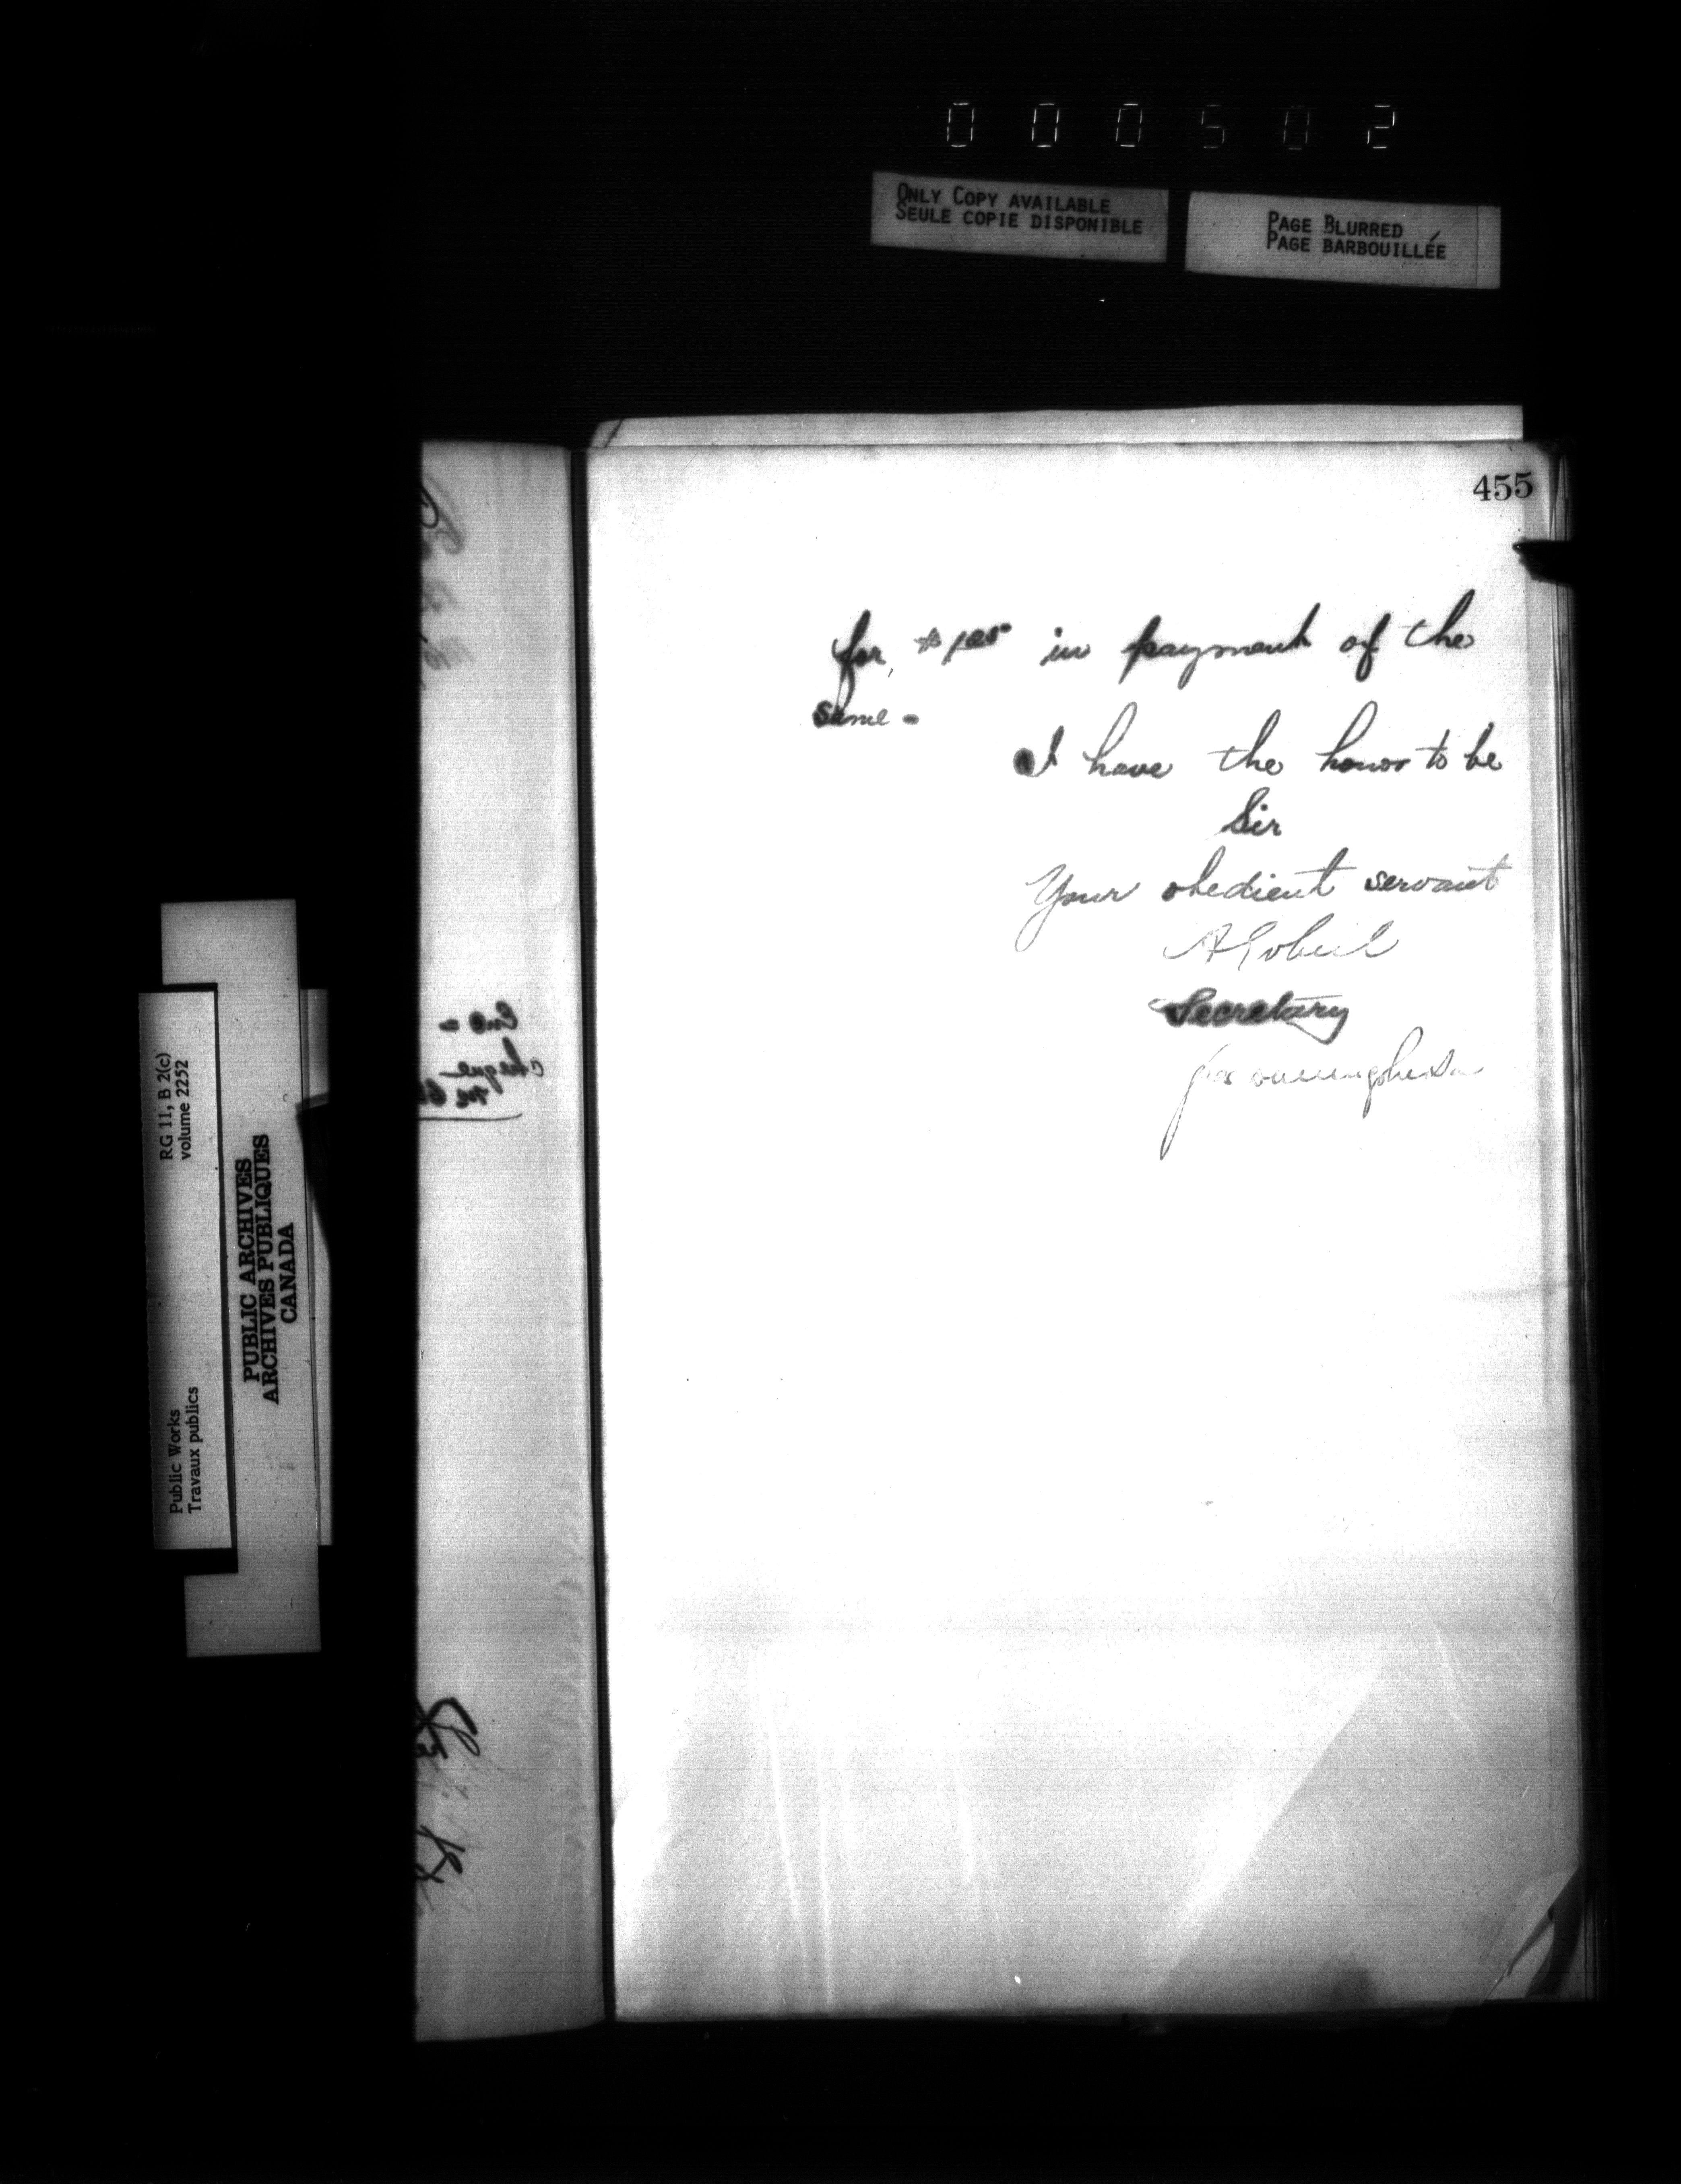 000502
ONLY COPY AVAILABLE
SEULE COPIE DISPONIBLE
PAGE BLURRED
PAGE BARBOUILLÉE
455
for in payment of the
same -
I have the honor to be
Sir
Your obedient servant
A Gobeil
Secretary
Enc =
cheque
RG 11, B 2(c)
volume 2252
PUBLIC ARCHIVES
ARCHIVES PUBLIQUES
CANADA
Public Works
Travaux publics